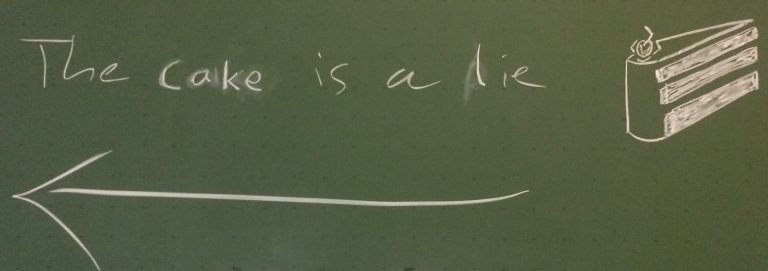 The cake is a lie